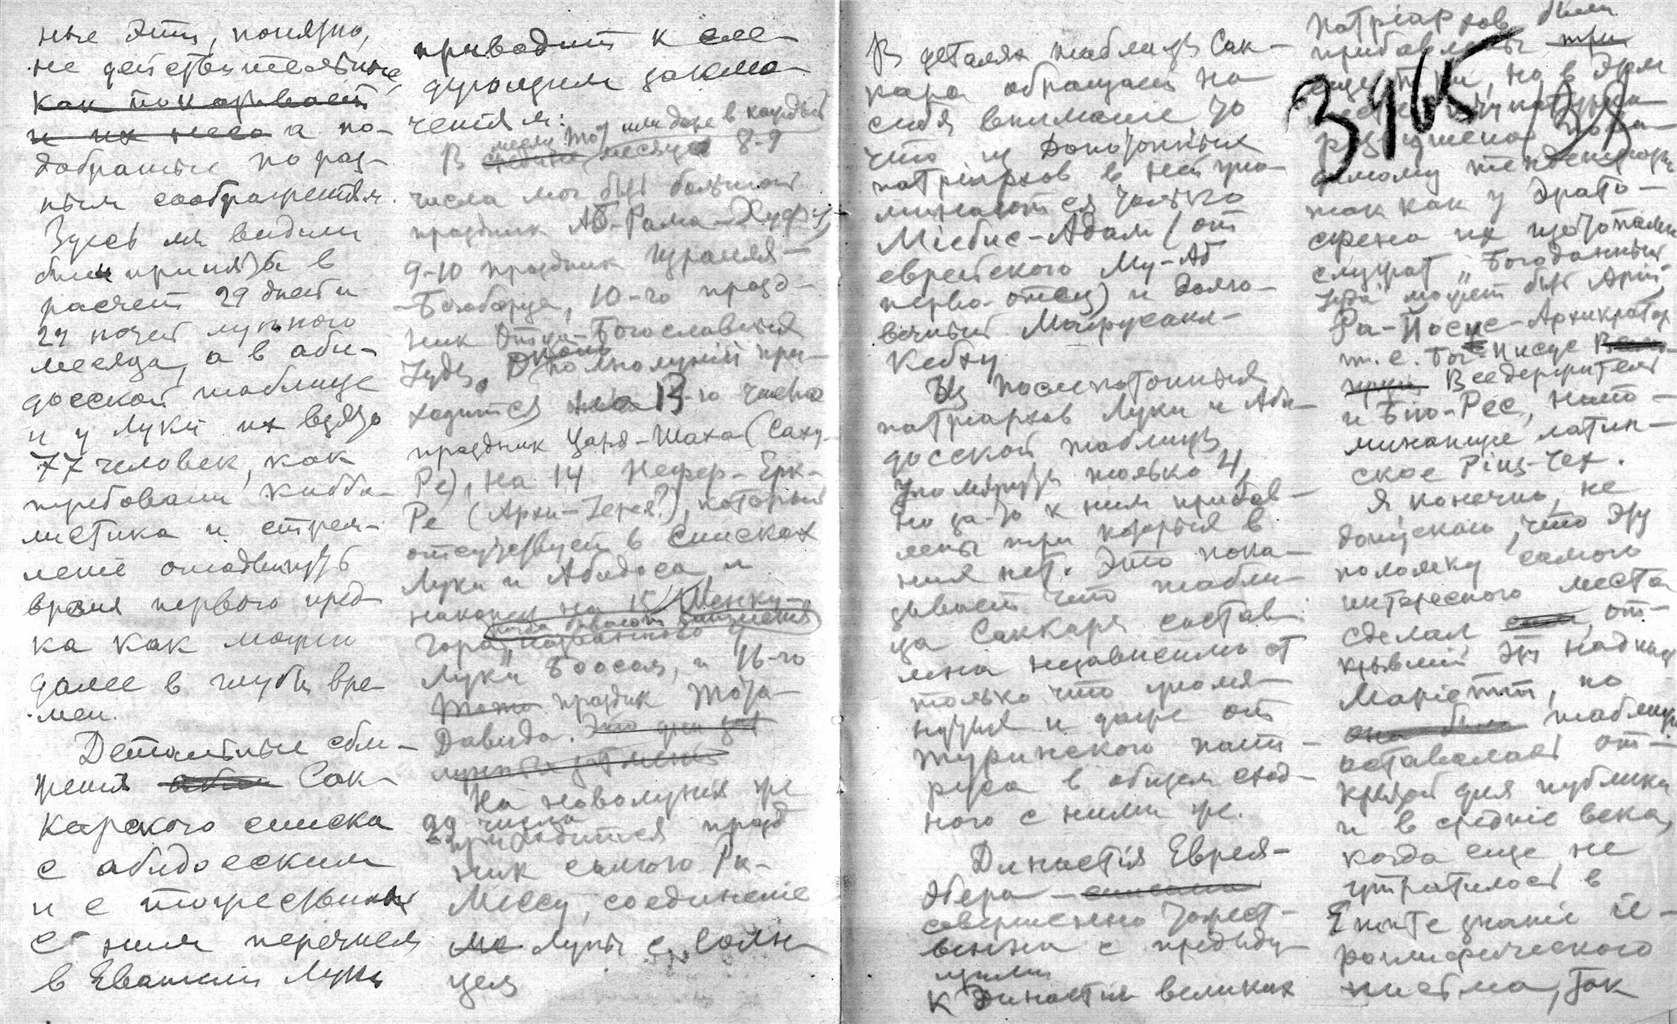 ные эти, понятно,
не действительные,
как показывает
и их число а по-
добранные по раз-
ным соображениям.
Здесь мы видим
были приняты в
расчет 29 дней и
29 ночей лунного
месяца, а в аби-
досской таблице
и у Луки их взято
77 человек, как
требовали кабба-
листика и стрем-
ление отодвинуть
время первого пред-
ка как можно
далее в глубь вре-
мен.
Детальные сбли-
жения Сак-
карского списка
с абидосским
и с тождественным
с ним перечнем
в Евангелии Луки
приводит к сле-
дующим заклю-
чениям:
В месяце 8-9
числа мог быть большой
праздник Аб-Рама-Хуфу,
9-10 праздник Израиля-
Богоборца, 10-го празд-
ник Богославления
Иуды, полнолуний при-
ходится 13-го числа
праздник Царя-Шаха (Саху-
Ре), на 14 Нефер-Ерк-
Ре (Архи-Иерея?), который
отсутствует в списках
Луки и Абидоса и
наконец на 15 Менку-
гора, названного у
Луки Боосом, и 16-го
праздник Тота-
Давида. Это дни
лунных затмений
На новолуния же
29 числа
приходится празд
ник самого Ра-
Мессу, соединение
Луны с Солн
цем
В деталях таблицы Сак-
кара обращает на
себя внимание то
что из допотопных
патриархов в ней упо-
минаются только
Міебис-Адам (от
еврейского Му-Аб
перво-отец) и долго-
вечный Мафусаил-
Кебху
Из послепотопных
патриархов Луки и Аби-
досской таблицы
упомянуты только 4,
но за-то к ним прибав-
лены три которых в
ния нет. Это пока-
зывает что табли-
ца Саккара состав
лена независимо от
только что упомя-
нутых и даже от
Туринского папи-
руса в общем сход-
ного с ними же.
Династія Еврея-
Эбера
совершенно тожест-
венна с предыду-
щими
к Династия великих
патріархов были
прибавлены три
3965
так как у Эрато-
сфена их
служат "Богоданный
может быть
Ра-Йосис-Архикратор
т.е. Бог-Иисус
Вседержитель
и Біо-Рес, напо-
минающие латин-
ское Рекс-Чех.
Я конечно, не
допускаю, что эту
поломку самого
интересного места
сделал от-
крывший эту надпись
Маріетт, но
она была таблица
оставалась от-
крытой для публики
и в средніе века,
когда еще не
утратилось в
Египте знаніе іе-
роглифического
письма, так